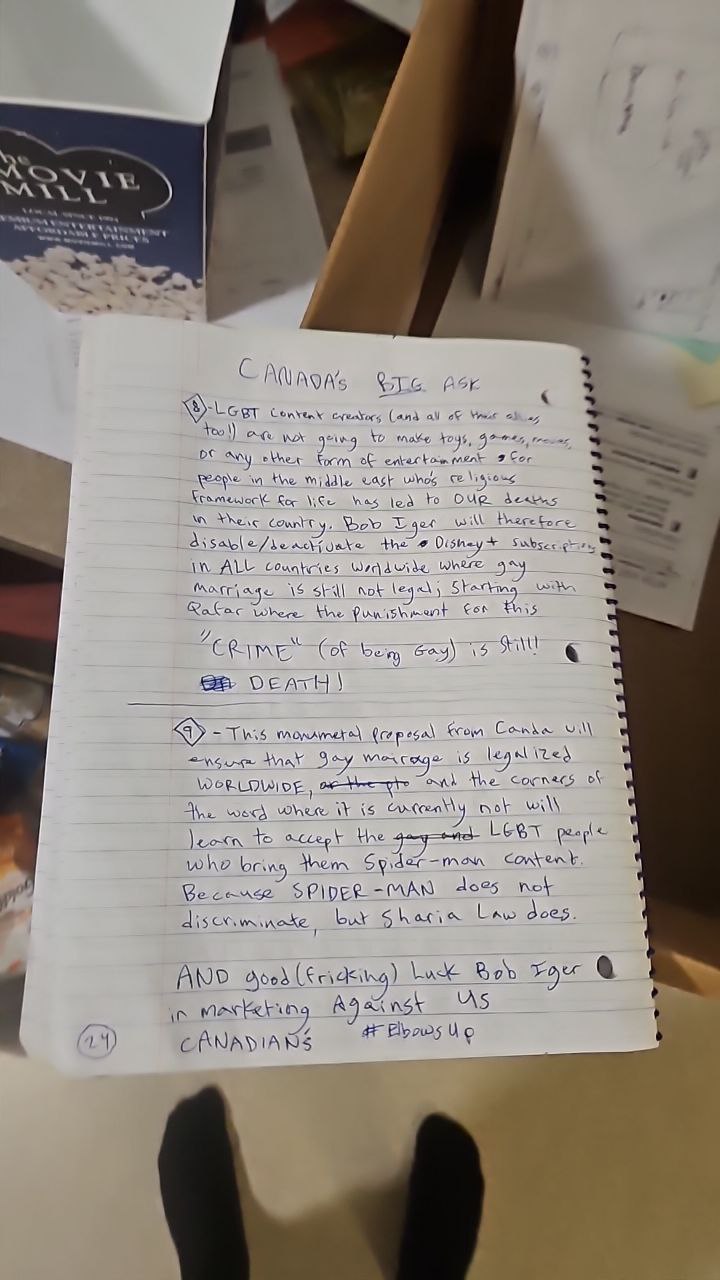 he
MOVIE
MILL
LOCAL SINCE 1991
PREMIUM ENTERTAINMENT
AFFORDABLE PRICES
CANADA's BIG ASK
8 -LGBT content creators (and all of their allies
too!) are not going to make toys, games, movies,
or any other form of entertainment, for
people in the middle east who's religious
framework for life has led to OUR deaths
in their country. Bob Iger will therefore
disable/deactivate the Disney+ subscription
in ALL countries worldwide where gay
marriage is still not legal; starting with
Qatar where the punishment for this
"CRIME" (of being Gay) is still!
DEATH!
9 - This monumetal proposal from Canda will
ensure that gay mairage is legalized
WORLDWIDE, or the pto and the corners of
the word where it is currently not will
learn to accept the gay and LGBT people
who bring them Spider-man content.
Because SPIDER-MAN does not
discriminate, but Sharia Law does.
AND good (fricking) Luck Bob Iger
in marketing Against US
CANADIAN's #ElbowsUp
24